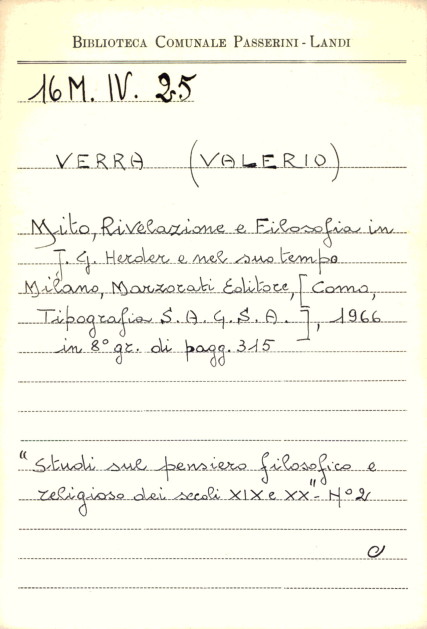 BIBLIOTECA COMUNALE PASSERINI - LANDI
16 M. IV. 25
VERRA (VALERIO)
Mito, Rivelazione e Filosofia in
J. G. Herder e nel suo tempo
Milano, Marzorati Editore, [Como,
Tipografia S. A. G. S. A. ], 1966
in 8° gr. di pagg. 315
"Studi sul pensiero filosofico e
religioso dei secoli XIX e XX" - N° 2